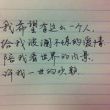 我希望有这么一个人,
给我波澜不惊的爱情.
陪我看世界的风景.
许我一世的欢颜.